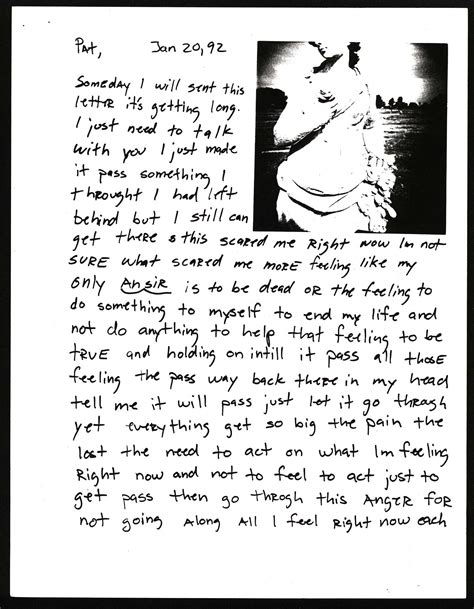 Pat, Jan 20, 92
Someday I will sent this
letter it's getting long.
I just need to talk
with you I just made
it pass something I
throught I had left
behind but I still can
get there & this scared me Right now Im not
SURE what scared me more feeling like my
only Ansir is to be dead or the feeling to
do something to myself to end my life and
not do anything to help that feeling to be
true and holding on intill it pass all those
feeling the pass way back there in my head
tell me it will pass just let it go through
yet everything get so big the pain the
lost the need to act on what Im feeling
Right now and not to feel to act just to
get pass then go throgh this Anger for
not going Along All I feel Right now each